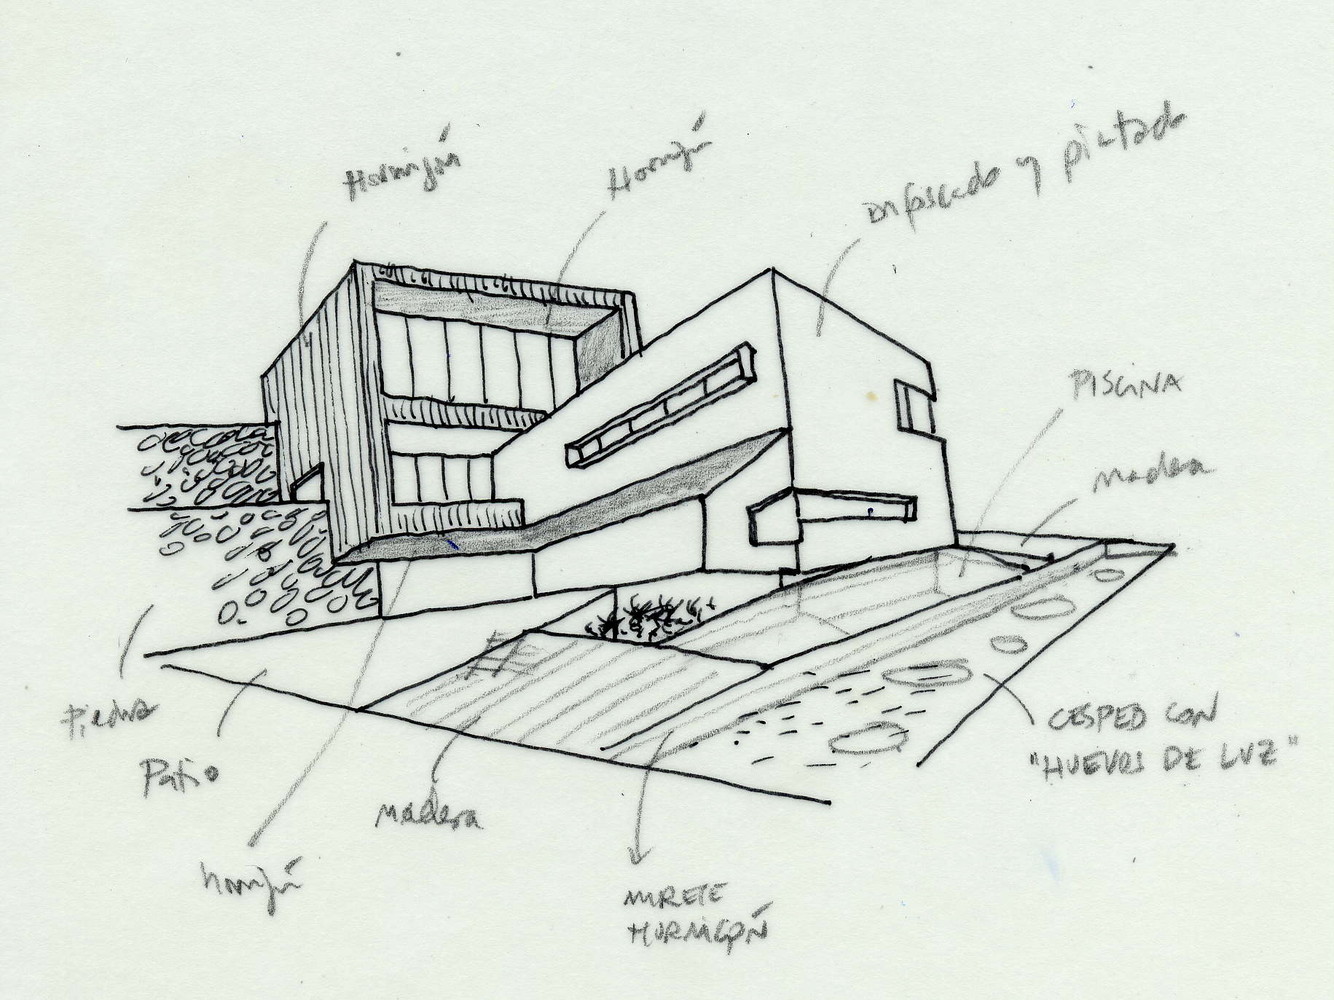 Hormigón
Hormigón
enfoscado y pintado
PISCINA
madera
Piedra
Patio
madera
CESPED CON
"HUEVOS DE LUZ"
hormigón
MURETE
HORMIGÓN